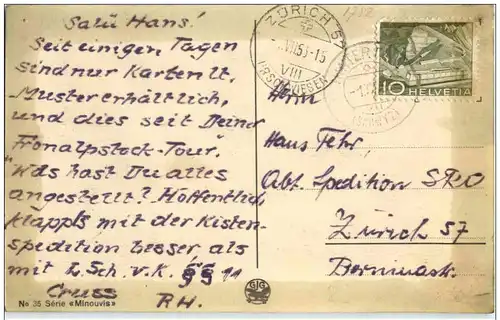 Salü Hans!
Seit einigen Tagen
sind nur Karten lt.
Muster erhältlich,
und dies seit Deiner
Fronalpstock-Tour.
Was hast Du alles
angestellt? Hoffentlich
klappts mit der Kisten-
spedition besser als
mit L.Sch. v.K. §§ 11
Gruss
RH.
No 35 Série «Minouvis»
ZÜRICH 57
VIII
1752
10 HELVETIA
Herrn
Hans Fehr,
Abt. Spedition SRO
Zürich 57
Berninastr.